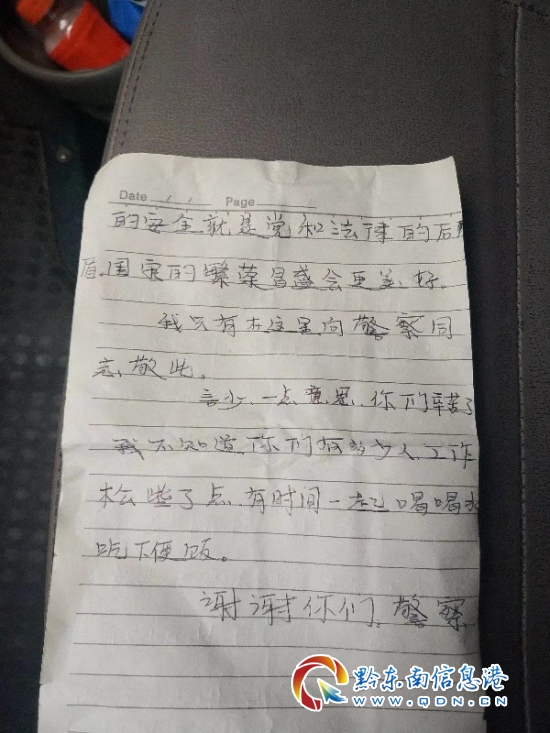 Date / / Page
的安全就是党和法律的后
盾.国家的繁荣昌盛会更美好.
我只有在这里向警察同
志敬此.
言少.一点意思.你们辛苦了
我不知道你们有多少人工作
松些了点.有时间一起喝喝水
吃下便饭。
谢谢你们.警察
黔东南信息港
www.QDN.CN